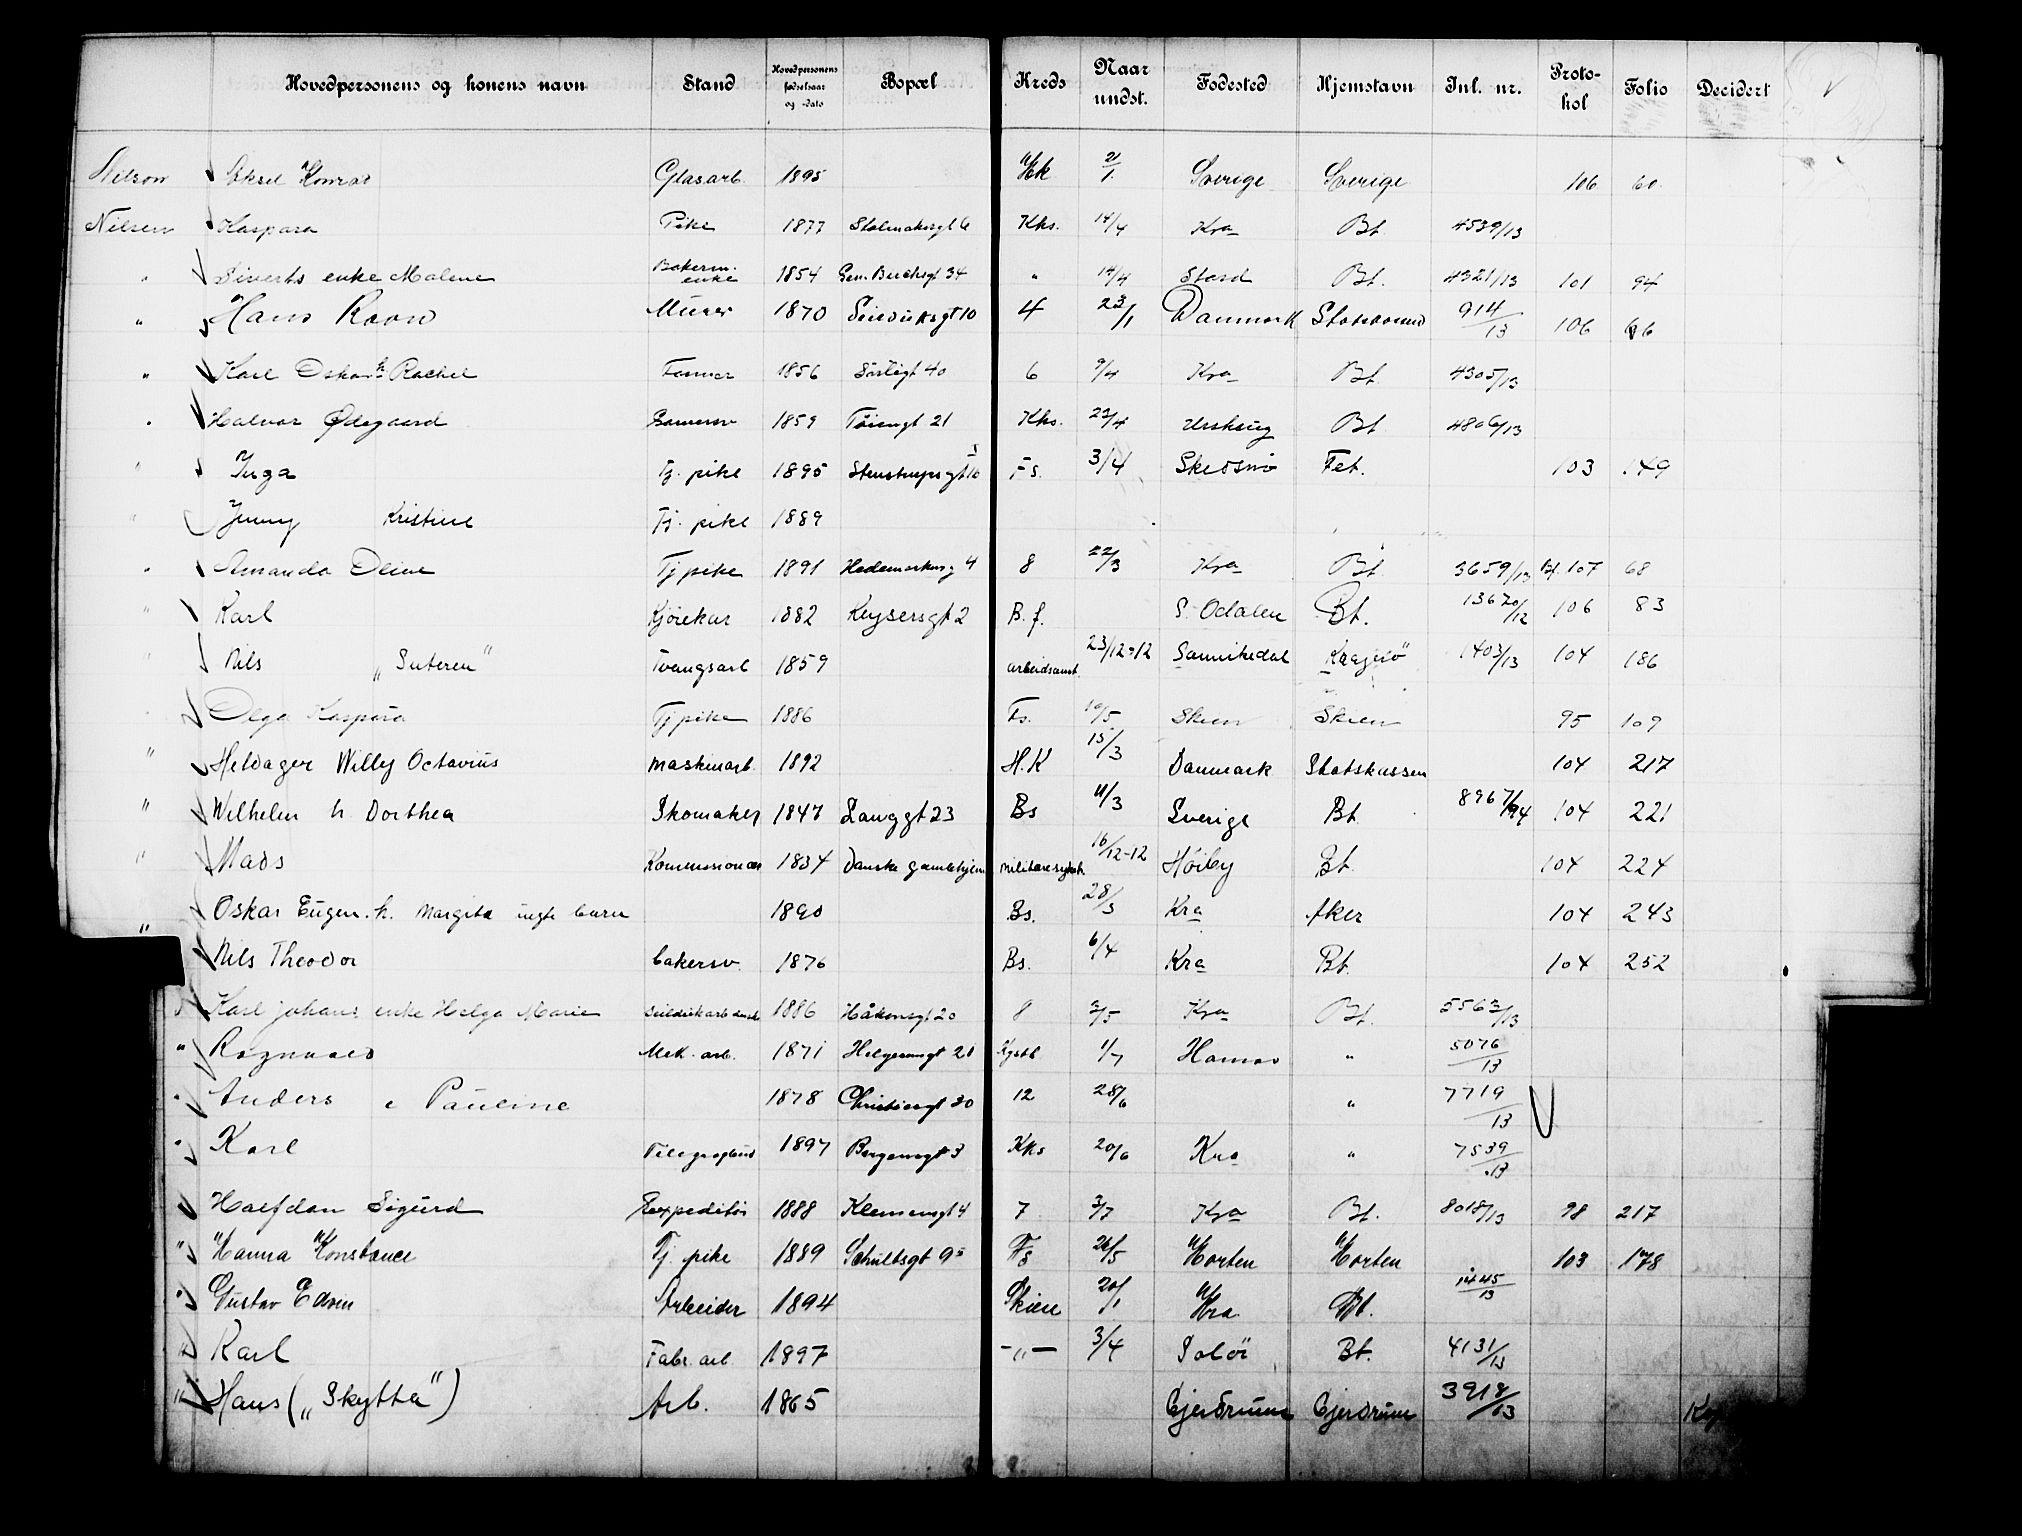 Hovedpersonens og konens navn Stand Hovedpersonens fødselsaar og -dato Bopæl Kreds Naar undst. Fødested Hjemstavn Inl. nr. Protokol Folio Decidert
Nilson Aksel Konrad Glasarb. 1895 Hk 21/1 Sverige Sverige 106 60
Nilsen Kaspara Pike 1877 Stolmakergt 6 Kks. 14/4 Kra Bt. 4539/13
" Siverts enke Malene Bakerm. enke 1854 Gen. Berchsgt 34 " 14/4 Stord Bt. 4321/13 101 94
" Hans Raon Murer 1870 Seilduksgt 10 4 23/1 Danmark 914/13 106 66
" Karl Oskar h Rachel Former 1856 Sörligt 40 6 9/4 Kra Bt 4305/13
" Halvor Ødegaard 1859 Töiengt 21 Kks. 22/4 Urskoug Bt 4806/13
" Inga Tj. pike 1895 Stenstrupsgt 10 Fs. 3/4 Skedsmo Fet. 103 149
" Jenny Kristine Tj. pike 1889
" Amanda Oline Tj pike 1891 Hedemarksg 4 8 22/3 Kra Bt 3659/13 Bf. 107 68
" Karl Kjörekar 1882 Keysersgt 2 B. f. S. Odalen Bt. 13670/12 106 83
" Nils "Suteren" Tvangsarb 1859 arbeidsanst. 23/12-12 Sannikedal Kragerö 1403/13 104 186
" Olga Kaspara Tj pike 1886 Fs. 10/5 Skien Skien 95 109
" Heldager Willy Octavius maskinarb. 1892 H.K 15/3 Danmark Statskassen 104 217
" Wilhelm h. Dorthea Skomaker 1847 Langgt 23 Bs 11/3 Sverige Bt. 8967/94 104 221
" Mads Kommissionær 1834 Danske gamlehjem militæresykeh. 16/12-12 Höiby Bt. 104 224
" Oskar Eugen. h. Margita ugte barn 1890 Bs. 28/3 Kra Aker 104 243
Nils Theodor bakersv. 1876 Bs. 6/4 Kra Bt. 104 252
Karl Johans enke Helga Marie 1886 Håkonsgt 20 8 2/5 Kra Bt. 5562/13
" Ragnvald Mek. arb. 1871 Helgesensgt 21 1/7 Hamar " 5076/13
" Anders e Pauline 1878 Christiesgt 30 12 28/6 " 7719/13
" Karl Telegrafbud 1897 Bergensgt 3 Kks 20/6 Kra " 7539/13
Halfdan Sigurd Expeditör 1888 Klemensgt 4 7 3/7 Kra Bt. 8018/13 98 217
" Hanna Konstance Tj. pike 1889 Schultsgt 9 Fs 26/5 Horten Horten 103 178
" Gustav Edvin Arbeider 1894 Skien 20/1 Kra Bt. 1445/13
" Karl Fabr. arb 1897 -"- 3/4 Solör Bt. 4131/13
" Hans ("Skytta") Arb. 1865 Gjerdrum Gjerdrum 3918/13